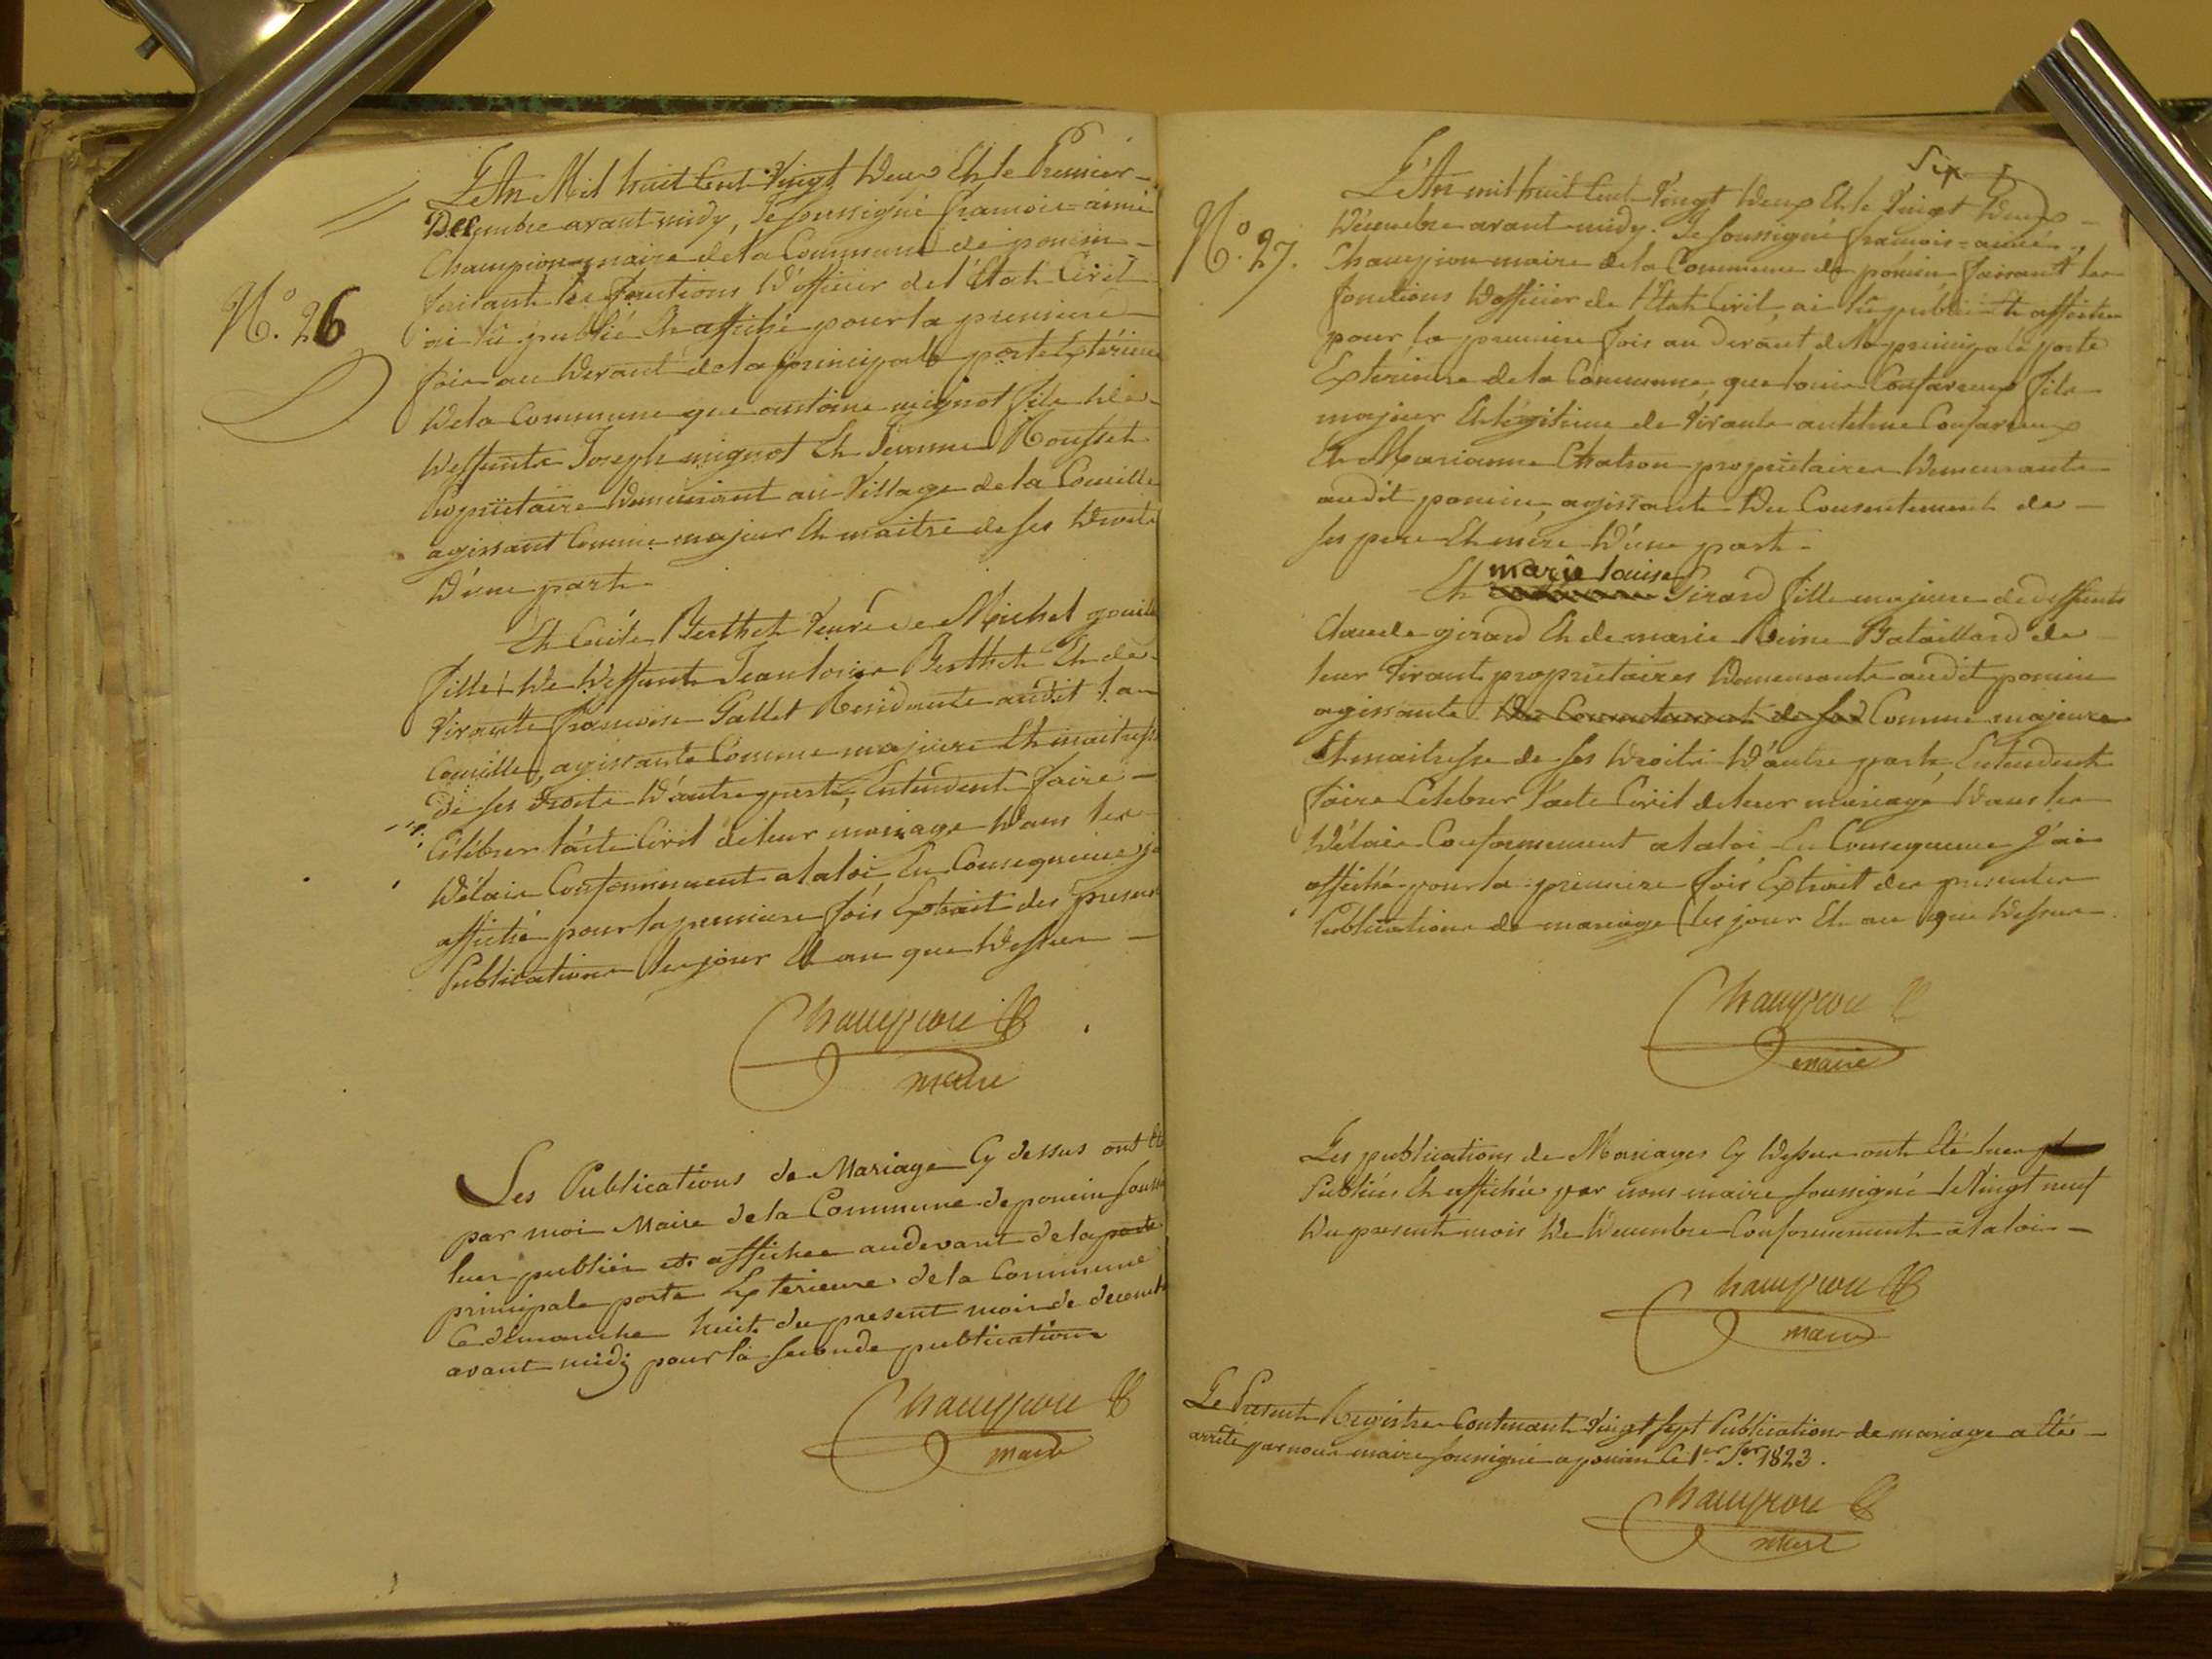 N.° 26
L'An Mil huit Cent Vingt Deux Et le Premier
Decembre avant midy, Je soussigné françois = aimé
Champion maire de la Commune de poncin
faisant les fonctions D'officier de l'Etat Civil
ai lû publié Et affiché pour la premiere
fois au Devant de la principale porte Extérieure
De la Commune que antoine mignot fils De
Deffunts Joseph mignot Et Jeanne Rousset
Propriétaire Demeurant au Village de la Coueille
agissant Comme majeur Et maitre de ses Droits
D'une part
Et Cécile Berthet Veuve de Michel gouill
fille De Deffunt Jean louis Berthet Et de
Vivante françoise Gallet Residante audit la
Coueille, agissante Comme majeure Et maitresse
de ses droits D'autre part, Entendent faire
Célébrer l'acte Civil de leur mariage Dans les
Délais Conformement a la loi En Consequence j'ai
affiché pour la premiere fois Extrait des presentes
Publications les jour Et an que Dessus
Champion
maire
Les Publications de Mariage Cy dessus ont été
par moi Maire de la Commune de poncin sous
lues publiées et affichées au devant de la porte
principale porte Exterieure de la Commune
Ce dimanche huit du present mois de decembre
avant midi pour la seconde publication
Champion
maire
N.° 27.
six
L'An mil huit Cent Vingt Deux Et le Vingt Deux
Décembre avant midy. Je soussigné françois = aimé
Champion maire de la Commune de poncin faisant les
fonctions D'officier de l'Etat Civil, ai lû publié Et affiché
pour la premiere fois au devant de la principale porte
Exterieure de la Commune, que louis Confavreux fils
majeur Et légitime de Vivants antelme Confavreux
Et Marianne Chatron propriétaires Demeurants
audit poncin, agissant Du Consentement de
ses pere Et mere D'une part
Et marie louise Girard fille majeure de deffunts
Claude girard Et de marie Reine Bataillard de
leur Vivant propriétaires Demeurants audit poncin
agissante Du Consentement de sa Comme majeure
Et maitresse de ses Droits D'autre part, Entendent
faire Celebrer l'acte Civil de leur mariage Dans les
Délais Conformement a la loi En Consequence J'ai
affiché pour la premiere fois Extrait des presentes
Publications de mariage les jour Et an que Dessus
Champion
maire
Les publications de Mariages Cy Dessus ont été lues
Publiées Et affichées par nous maire soussigné le Vingt neuf
Du present mois De Decembre Conformement a la loi
Champion
maire
Le Présent Registre Contenant Vingt sept Publications de mariage a été
arrêté par nous maire soussigné a poncin le 1.er J.er 1823.
Champion
maire